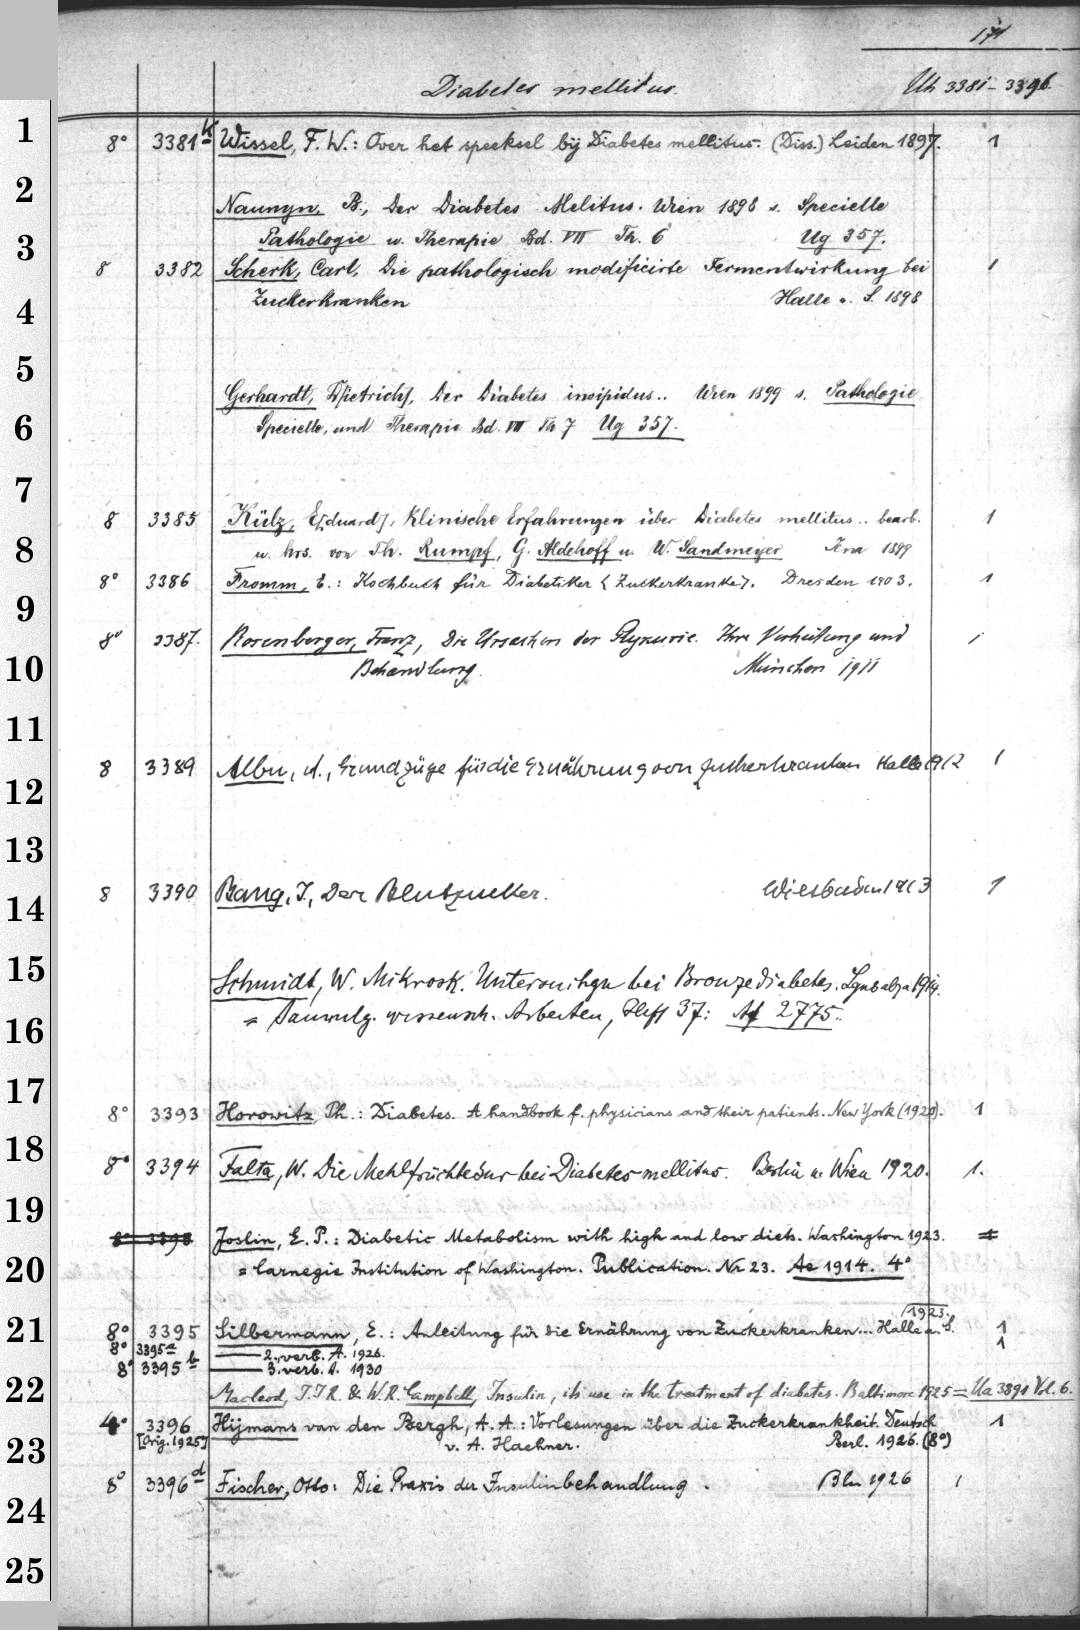 171
Diabetes mellitus. Uh 3381 - 3396.
1
8° 3381 k Wissel, F. W.: Over het speeksel bij Diabetes mellitus. (Diss.) Leiden 1897. 1
2
Naunyn, B., Der Diabetes Melitus. Wien 1898 s. Specielle
3
Pathologie u. Therapie Bd. VII Th. 6 Ug 357.
8 3382 Scherk, Carl, Die pathologisch modificirte Fermentwirkung bei 1
4
Zuckerkranken Halle a. S. 1898
5
Gerhardt, D[ietrich], Der Diabetes insipidus.. Wien 1899 s. Pathologie
6
Specielle, und Therapie Bd. VII Th 7 Ug 357.
7
8 3385 Külz, E[duard], Klinische Erfahrungen über Diabetes mellitus.. bearb. 1
8
u. hrs. von Th. Rumpf, G. Aldehoff u. W. Sandmeyer Jena 1899
8° 3386 Fromm, E.: Kochbuch für Diabetiker (Zuckerkranke). Dresden 1903. 1
9
8° 3387. Rosenberger, Franz, Die Ursachen der Glykurie. Ihre Verhütung und 1
10
Behandlung. München 1911
11
8 3389 Albu, A., Grundzüge für die Ernährung von Zuckerkranken Halle 1912 1
12
13
8 3390 Bang, I., Der Blutzucker. Wiesbaden 1913 1
14
15
Schmidt, W. Mikrosk. Untersuchgn bei Bronzediabetes. 1914.
16
= wissensch. Arbeiten, Heft 37: Af 2775..
17
8° 3393 Horowitz, Ph.: Diabetes. A handbook f. physicians and their patients. New York (1920). 1
18
8° 3394 Falta, W. Die Mehlfrüchtekur bei Diabetes mellitus. Berlin u. Wien 1920. 1.
19
8° 3398 Joslin, E. P.: Diabetic Metabolism with high and low diets. Washington 1923. 1
20
= Carnegie Institution of Washington. Publication. Nr 23. Ae 1914. 4°
1923.
21
8° 3395 Silbermann, E.: Anleitung für die Ernährung von Zuckerkranken... Halle a. S. 1
8° 3395 a —— 2. verb. A. 1926. 1
8° 3395 b —— 3. verb. A. 1930
22
Macleod, J. J. R. & W. R. Campbell, Insulin, its use in the treatment of diabetes. Baltimore 1925 = Ua 3891 Vol. 6.
4° 3396 Hijmans van den Bergh, A. A.: Vorlesungen über die Zuckerkrankheit. Deutsch 1
23
[Orig. 1925] v. A. Haehner. Berl. 1926. (8°)
8° 3396 d Fischer, Otto: Die Praxis der Insulinbehandlung. Bln 1926 1
24
25